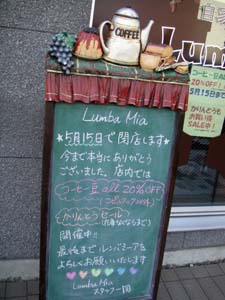 COFFEE
Lumba Mia
★5月15日で閉店します★
今まで本当にありがとう
ございました。店内では
コーヒー豆 all 20%OFF
かりんとうセール
開催中!!
最後までルンバミーアを
よろしくお願いいたします
Lumba Mia
スタッフ一同
コーヒー豆ALL
20%OFF!
5月15日まで
かりんとうも
お買い得
SALE中!